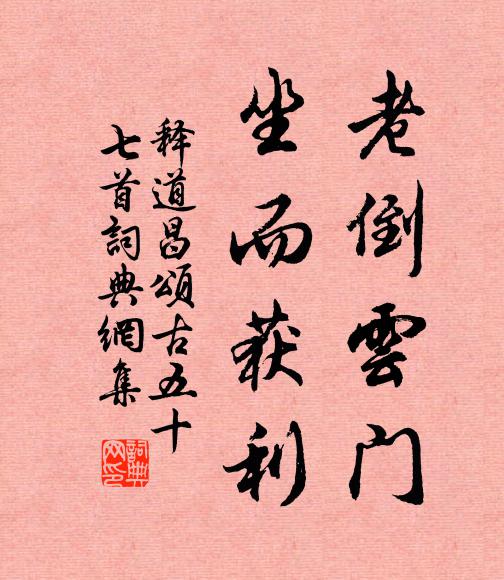 老倒雲門
坐而获利
释道昌頌古五十
七首詞典網集
詞典
网印